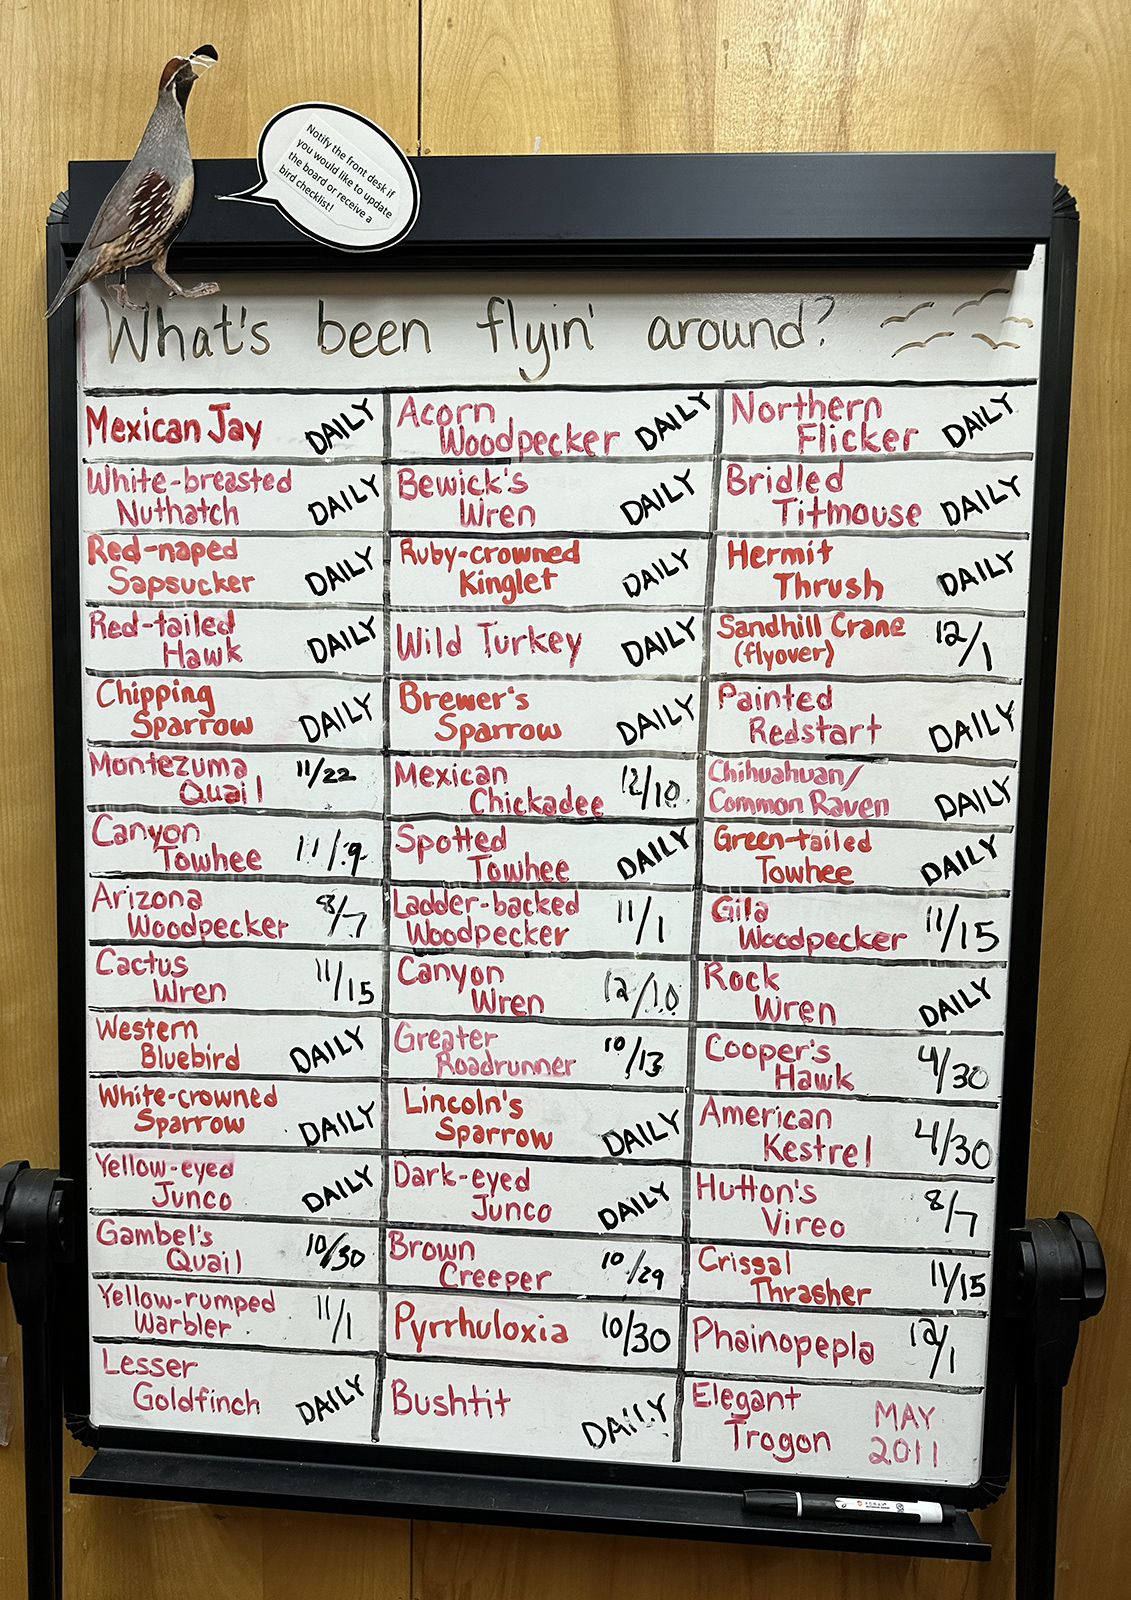 Notify the front desk if
you would like to update
the board or receive a
bird checklist!
What's been flyin' around?
Mexican Jay DAILY
Acorn
Woodpecker DAILY
Northern
Flicker DAILY
White-breasted
Nuthatch DAILY
Bewick's
Wren DAILY
Bridled
Titmouse DAILY
Red-naped
Sapsucker DAILY
Ruby-crowned
Kinglet DAILY
Hermit
Thrush DAILY
Red-tailed
Hawk DAILY
Wild Turkey DAILY
Sandhill Crane
(flyover) 12/1
Chipping
Sparrow DAILY
Brewer's
Sparrow DAILY
Painted
Redstart DAILY
Montezuma
Quail 11/22
Mexican
Chickadee 12/10
Chihuahuan/
Common Raven DAILY
Canyon
Towhee 11/9
Spotted
Towhee DAILY
Green-tailed
Towhee DAILY
Arizona
Woodpecker 8/7
Ladder-backed
Woodpecker 11/1
Gila
Woodpecker 11/15
Cactus
Wren 11/15
Canyon
Wren 12/10
Rock
Wren DAILY
Western
Bluebird DAILY
Greater
Roadrunner 10/13
Cooper's
Hawk 4/30
White-crowned
Sparrow DAILY
Lincoln's
Sparrow DAILY
American
Kestrel 4/30
Yellow-eyed
Junco DAILY
Dark-eyed
Junco DAILY
Hutton's
Vireo 8/7
Gambel's
Quail 10/30
Brown
Creeper 10/29
Crissal
Thrasher 11/15
Yellow-rumped
Warbler 11/1
Pyrrhuloxia 10/30
Phainopepla 12/1
Lesser
Goldfinch DAILY
Bushtit DAILY
Elegant
Trogon MAY
2011